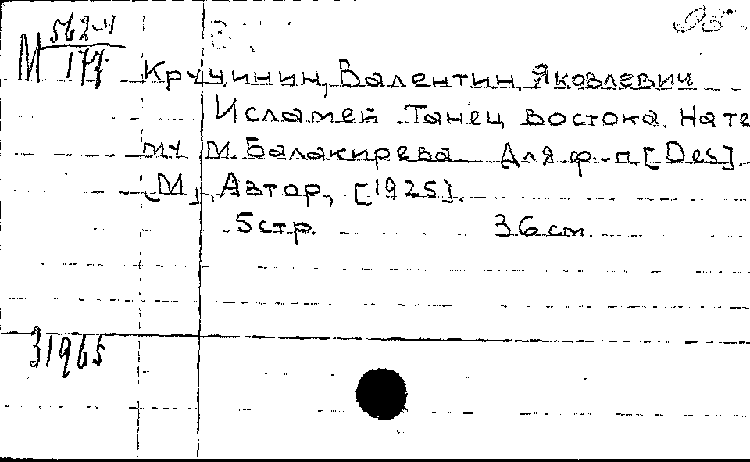 М 562-4
177
Кручинин, Валентин Яковлевич
Исламей. Танец востока. На те-
му М. Балакирева. Для ф.-п. [Des].
М., Автор, [1925].
5 стр. 36 см.
31965